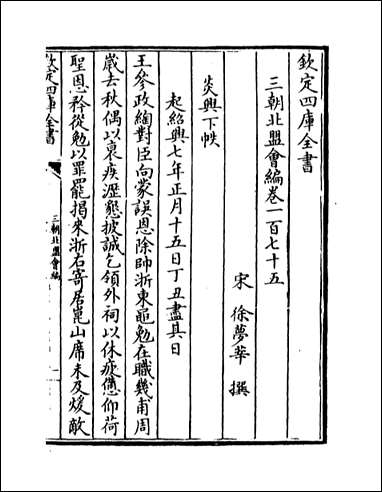 欽定四庫全書
三朝北盟會編卷一百七十五
宋 徐夢莘 撰
炎興下帙
起紹興七年正月十五日丁丑盡其日
王參政綯對臣向蒙誤恩除帥浙東黽勉在職幾甫周
歳去秋偶以衰疾瀝懇披誠乞領外祠以休疲憊仰荷
聖恩矜從勉以罪罷揭來浙右寄居崑山席未及煖敵
欽定四庫全書
三朝北盟會編
一